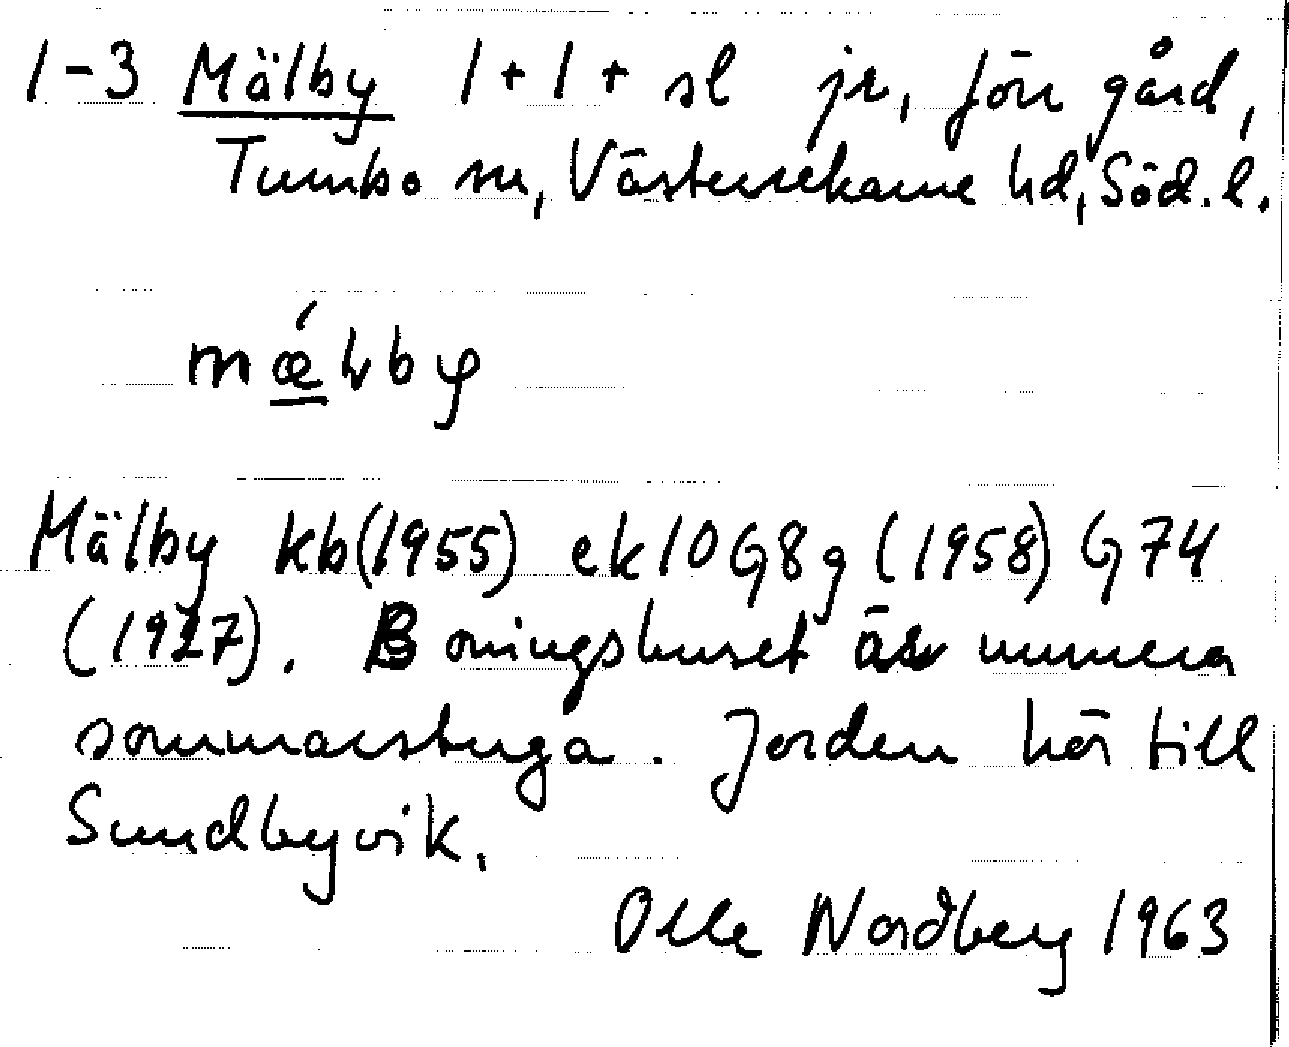 1-3 Mälby 1+1+ sl jr, förr gård,
Tumbo sn, Västerrekarne hd, Söd. l.
mǽlby
Mälby kb (1955) ek 10G8g (1958) G74
(1927). Boningshuset är numera
sommarstuga. Jorden hör till
Sundbyvik.
Olle Nordberg 1963